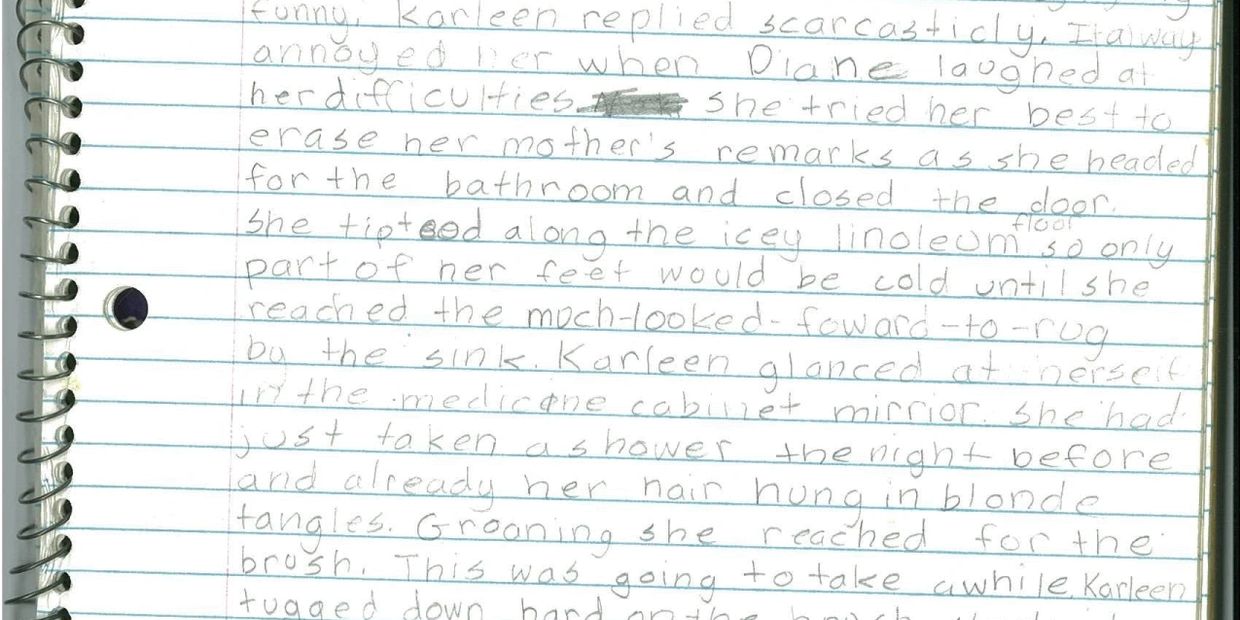 funny, Karleen replied scarcasticly. It alway
annoyed her when Diane laughed at
her difficulties. She tried her best to
erase her mother's remarks as she headed
for the bathroom and closed the door.
She tiptoed along the icey linoleum floor so only
part of her feet would be cold until she
reached the much-looked-foward-to-rug
by the sink. Karleen glanced at herself
in the medicine cabinet mirrior. She had
just taken a shower the night before
and already her hair hung in blonde
tangles. Groaning she reached for the
brush. This was going to take awhile. Karleen
tugged down hard on the